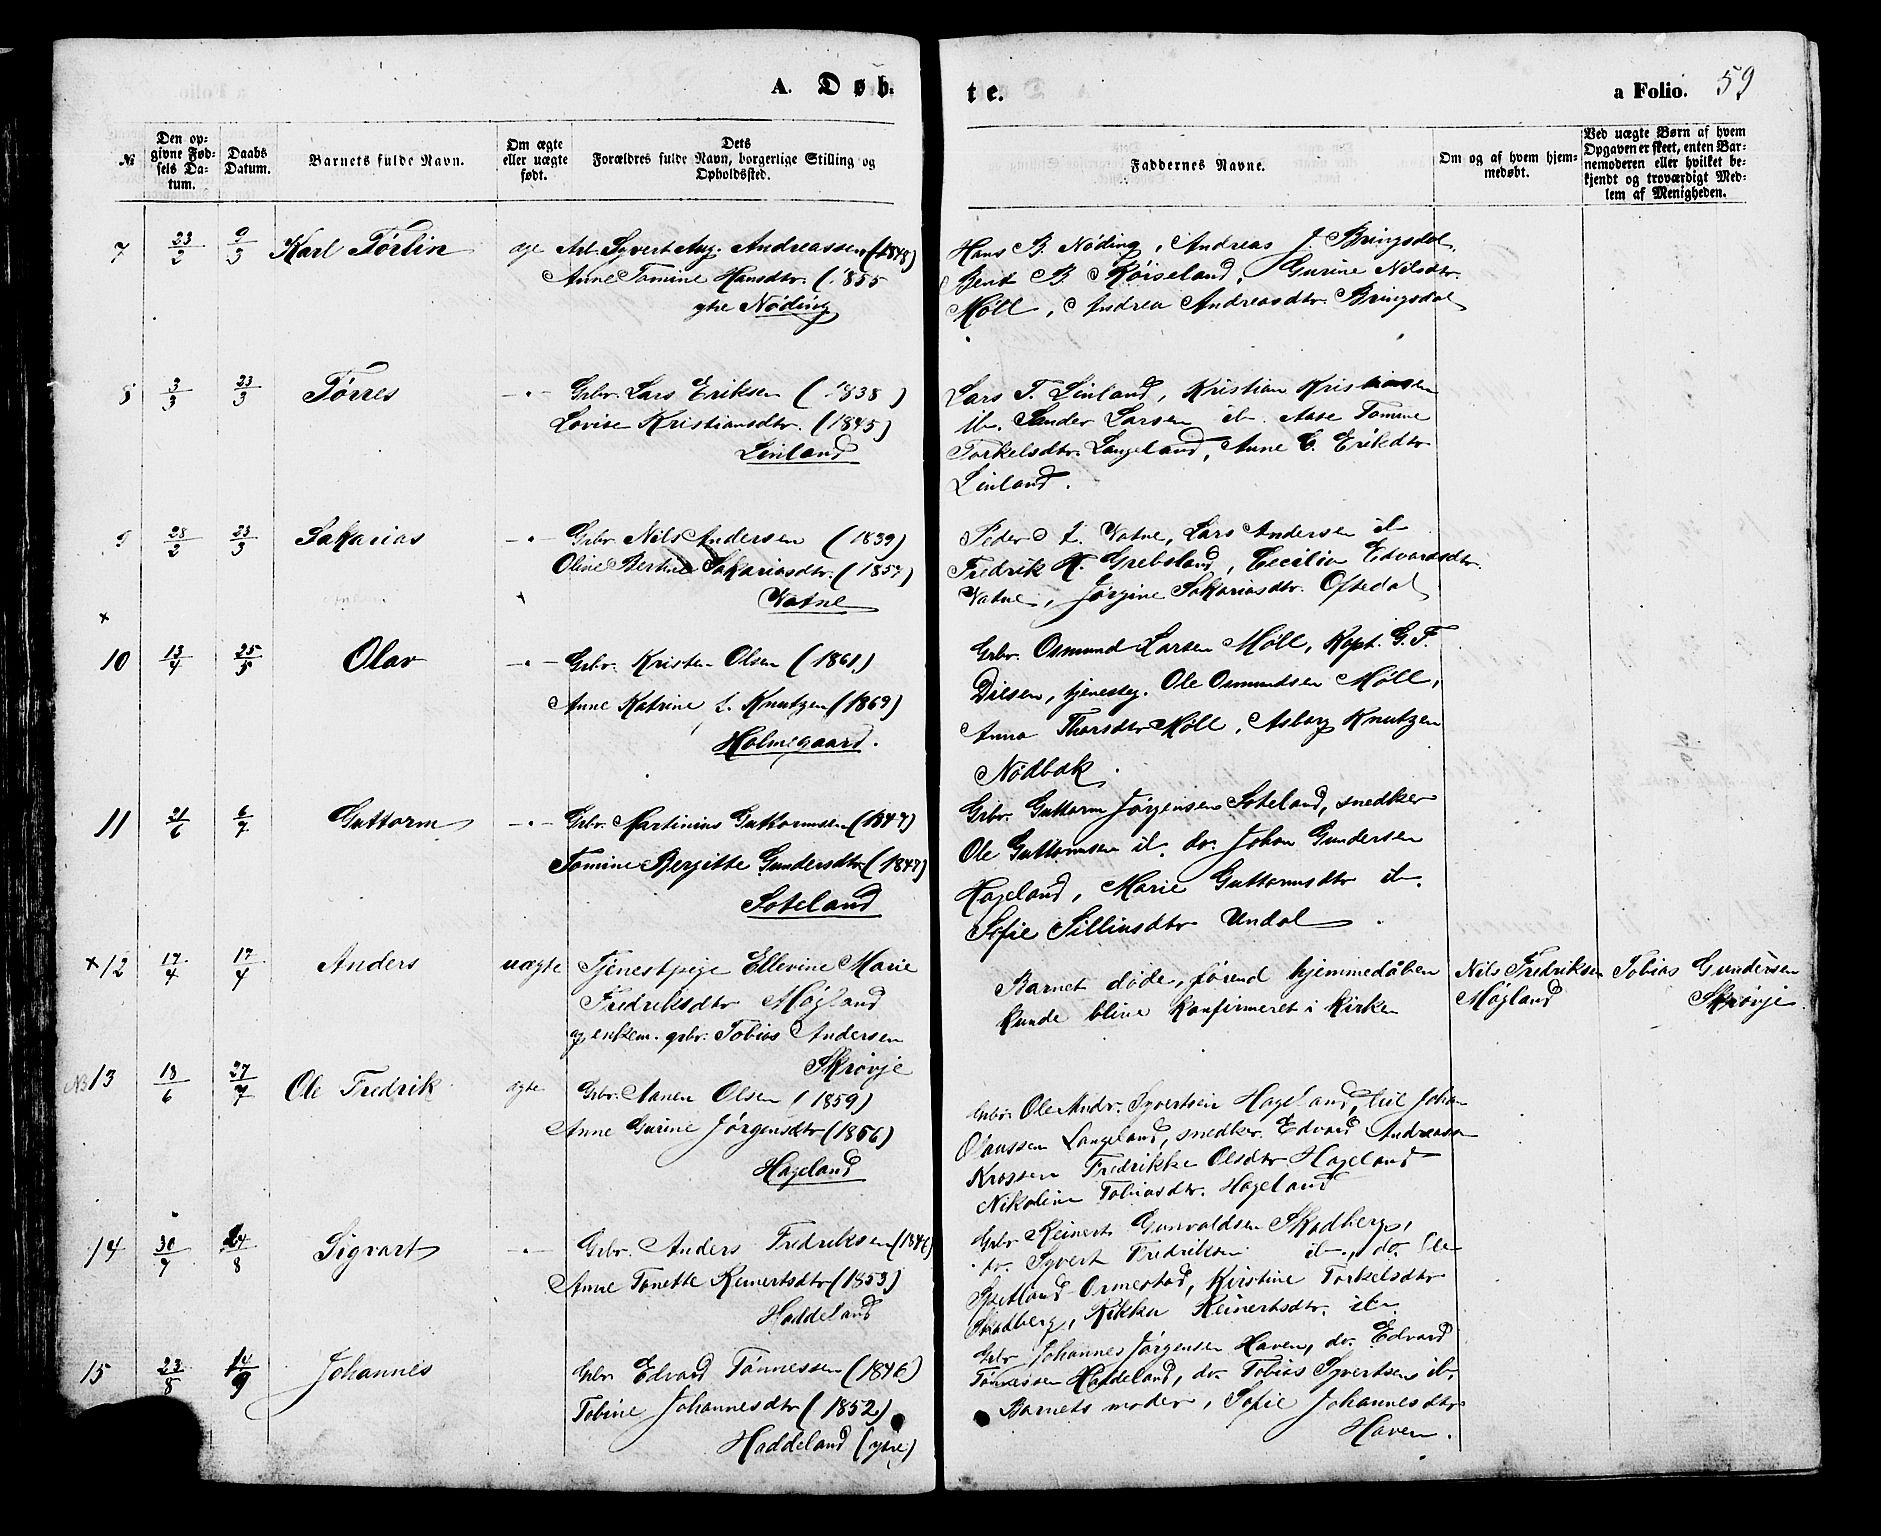 A. Døb.
te.
a Folio. 59
№
Den opgivne Fødsels Datum.
Daabs Datum.
Barnets fulde Navn.
Om ægte eller uægte født.
Dets Forældres fulde Navn, borgerlige Stilling og Opholdssted.
Faddernes Navne.
Om og af hvem hjemmedøbt.
Ved uægte Børn af hvem Opgaven er skeet, enten Barnemoderen eller hvilket bekjendt og troværdigt Medlem af Menigheden.
7 23/2 9/3 Karl Tørlin
Arb. Syvert Aug. Andreassen (1848)
Anne Tomine Hansdtr. (1855
ytre Nøding
Hans B. Nøding, Andreas J. Bringsdal,
Bent B. Røiseland, Gurine Nilsdtr.
Møll, Andrea Andreasdtr. Bringsdal
8 3/3 23/3 Tørres —"—
Grbr. Lars Eriksen (1838)
Lovise Kristiansdtr. (1845)
Linland
Lars T. Linland, Kristian Kristiansen
ib. Sander Larsen ib. Aase Tomine
Torkelsdtr. Langeland, Anne C. Eriksdtr
Linland.
9 28/2 23/3 Sakarias —"—
Grbr. Nils Andersen (1839)
Oline Bertine Sakariasdtr. (1857)
Vatne
Peder L. Vatne, Lars Andersen ib
Fredrik K. Grebsland, Cecilie Edvardsdtr.
Vatne, Jørgine Sakariasdtr. Oftedal
×
10 13/4 25/5 Olav —"—
Grbr. Kristen Olsen (1861)
Anne Katrine L. Knutzen (1869)
Holmegaard.
Grbr. Osmund Larsen Møll, Kapt. G. F.
Dielsen, tjenestg. Ole Osmundsen Møll,
Anna Thorsdtr Møll, Asborg Knutzen
Nødbak.
11 21/6 6/7 Guttorm —"—
Grbr. Martinius Guttormsen (1847)
Tomine Bergitte Gundersdtr. (1847)
Soteland
Grbr. Guttorm Jørgensen Soteland, snedker
Ole Guttormsen ib. do. Johan Gundersen
Hageland, Marie Guttormsdtr ib.
Sofie Sillinsdtr Undal.
×12 17/4 17/4 Anders uægte
Tjenestpige Ellevine Marie
Fredriksdtr Møgland
og enkem. grbr. Tobias Andersen
Skrøvje
Barnet døde, førend hjemmedåben
kunde blive konfirmeret i kirken
Nils Fredriksen
Møgland
Tobias Gundersen
Skrøvje
13 18/6 27/7 Ole Fredrik ægte
Grbr. Aanen Olsen (1859)
Anne Gurine Jørgensdtr (1866)
Hageland
Grbr. Ole Andr. Syvertsen Hageland, Johan
Olaussen Langeland, snedker Edvard Andreasen
Krossen Fredrikke Olsdtr Hageland
Nikoline Tobiasdtr. Hageland
14 30/7 24/8 Sigvart —"—
Grbr. Anders Fredriksen (1846)
Anne Tonette Reinertsdtr (1853)
Haddeland
Grbr Reinert Gunvaldsen Skadberg,
do. Syvert Fredriksen ib., do. Ole
Spetland Ormestad, Kirstine Torkelsdtr
Skadberg, Rikka Reinertsdtr. ib
15 23/8 14/9 Johannes
Grbr Edvard Tønnessen (1846)
Tobine Johannesdtr (1852)
Haddeland (ytre)
Grbr Johannes Jørgensen Haven, do. Edvard
Tønnessen Haddeland, do. Tobias Syvertsen ib,
Barnets moder, Sofie Johannesdtr
Haven.